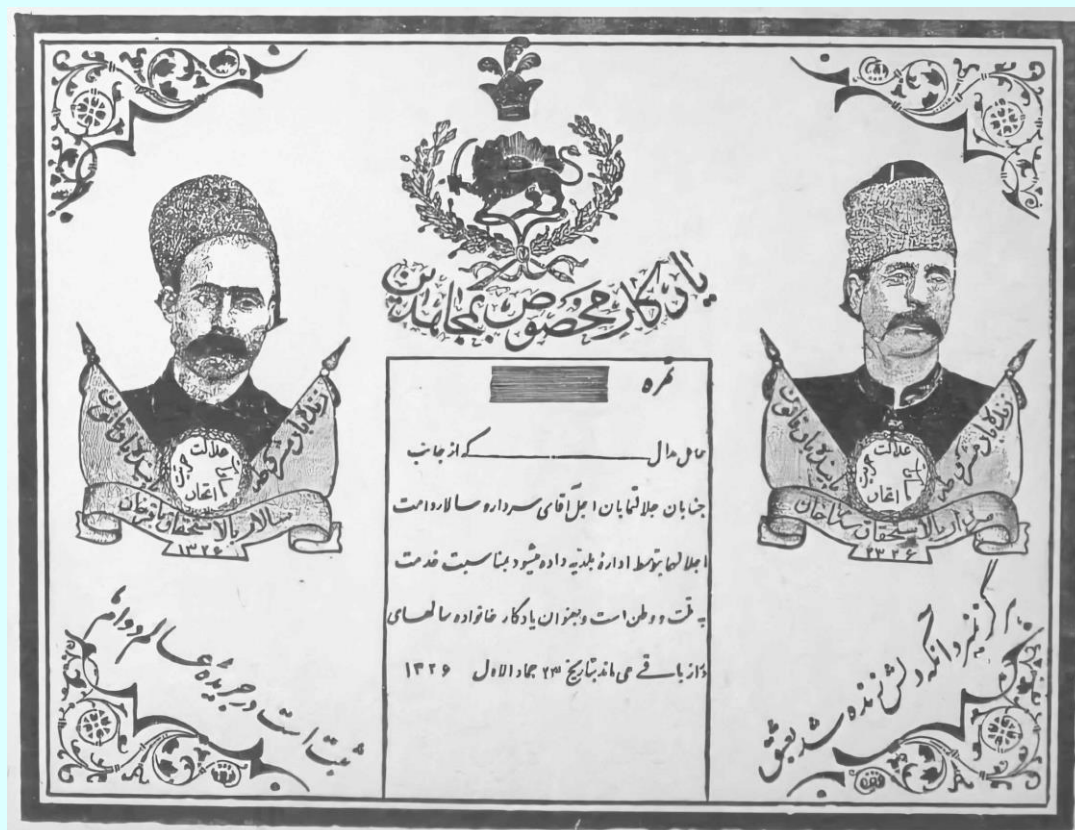 یادکار مخصوص بمجاهدین
نمره
حامل مدال که از جانب
جنابان جلالتمابان اجل آقای سردار و سالار دامت
اجلالهما بتوسط ادارهٔ بلدیه داده میشود بمناسبت خدمت
به ملت و وطن است و بعنوان یادکار خانواده سالهای
دراز باقی می ماند بتاریخ ۲۳ جماد الاول ۱۳۲۶
زنده باد مشروطه
پاینده باد قانون
عدالت
حریت
مساوات
اتحاد
سردار بالاستحقاق ستارخان
۲۳۲۶
زنده باد مشروطه
پاینده باد قانون
عدالت
حریت
مساوات
اتحاد
سالار بالاستحقاق باقرخان
۱۳۲۶
هرگز نمیرد آنکه دلش زنده شد بعشق
ثبت است در جریدهٔ عالم دوام ما